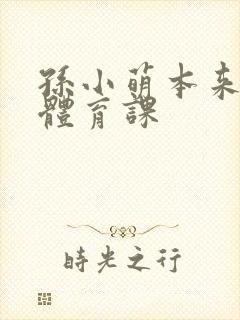 孫小萌本来
體育課
時光之行